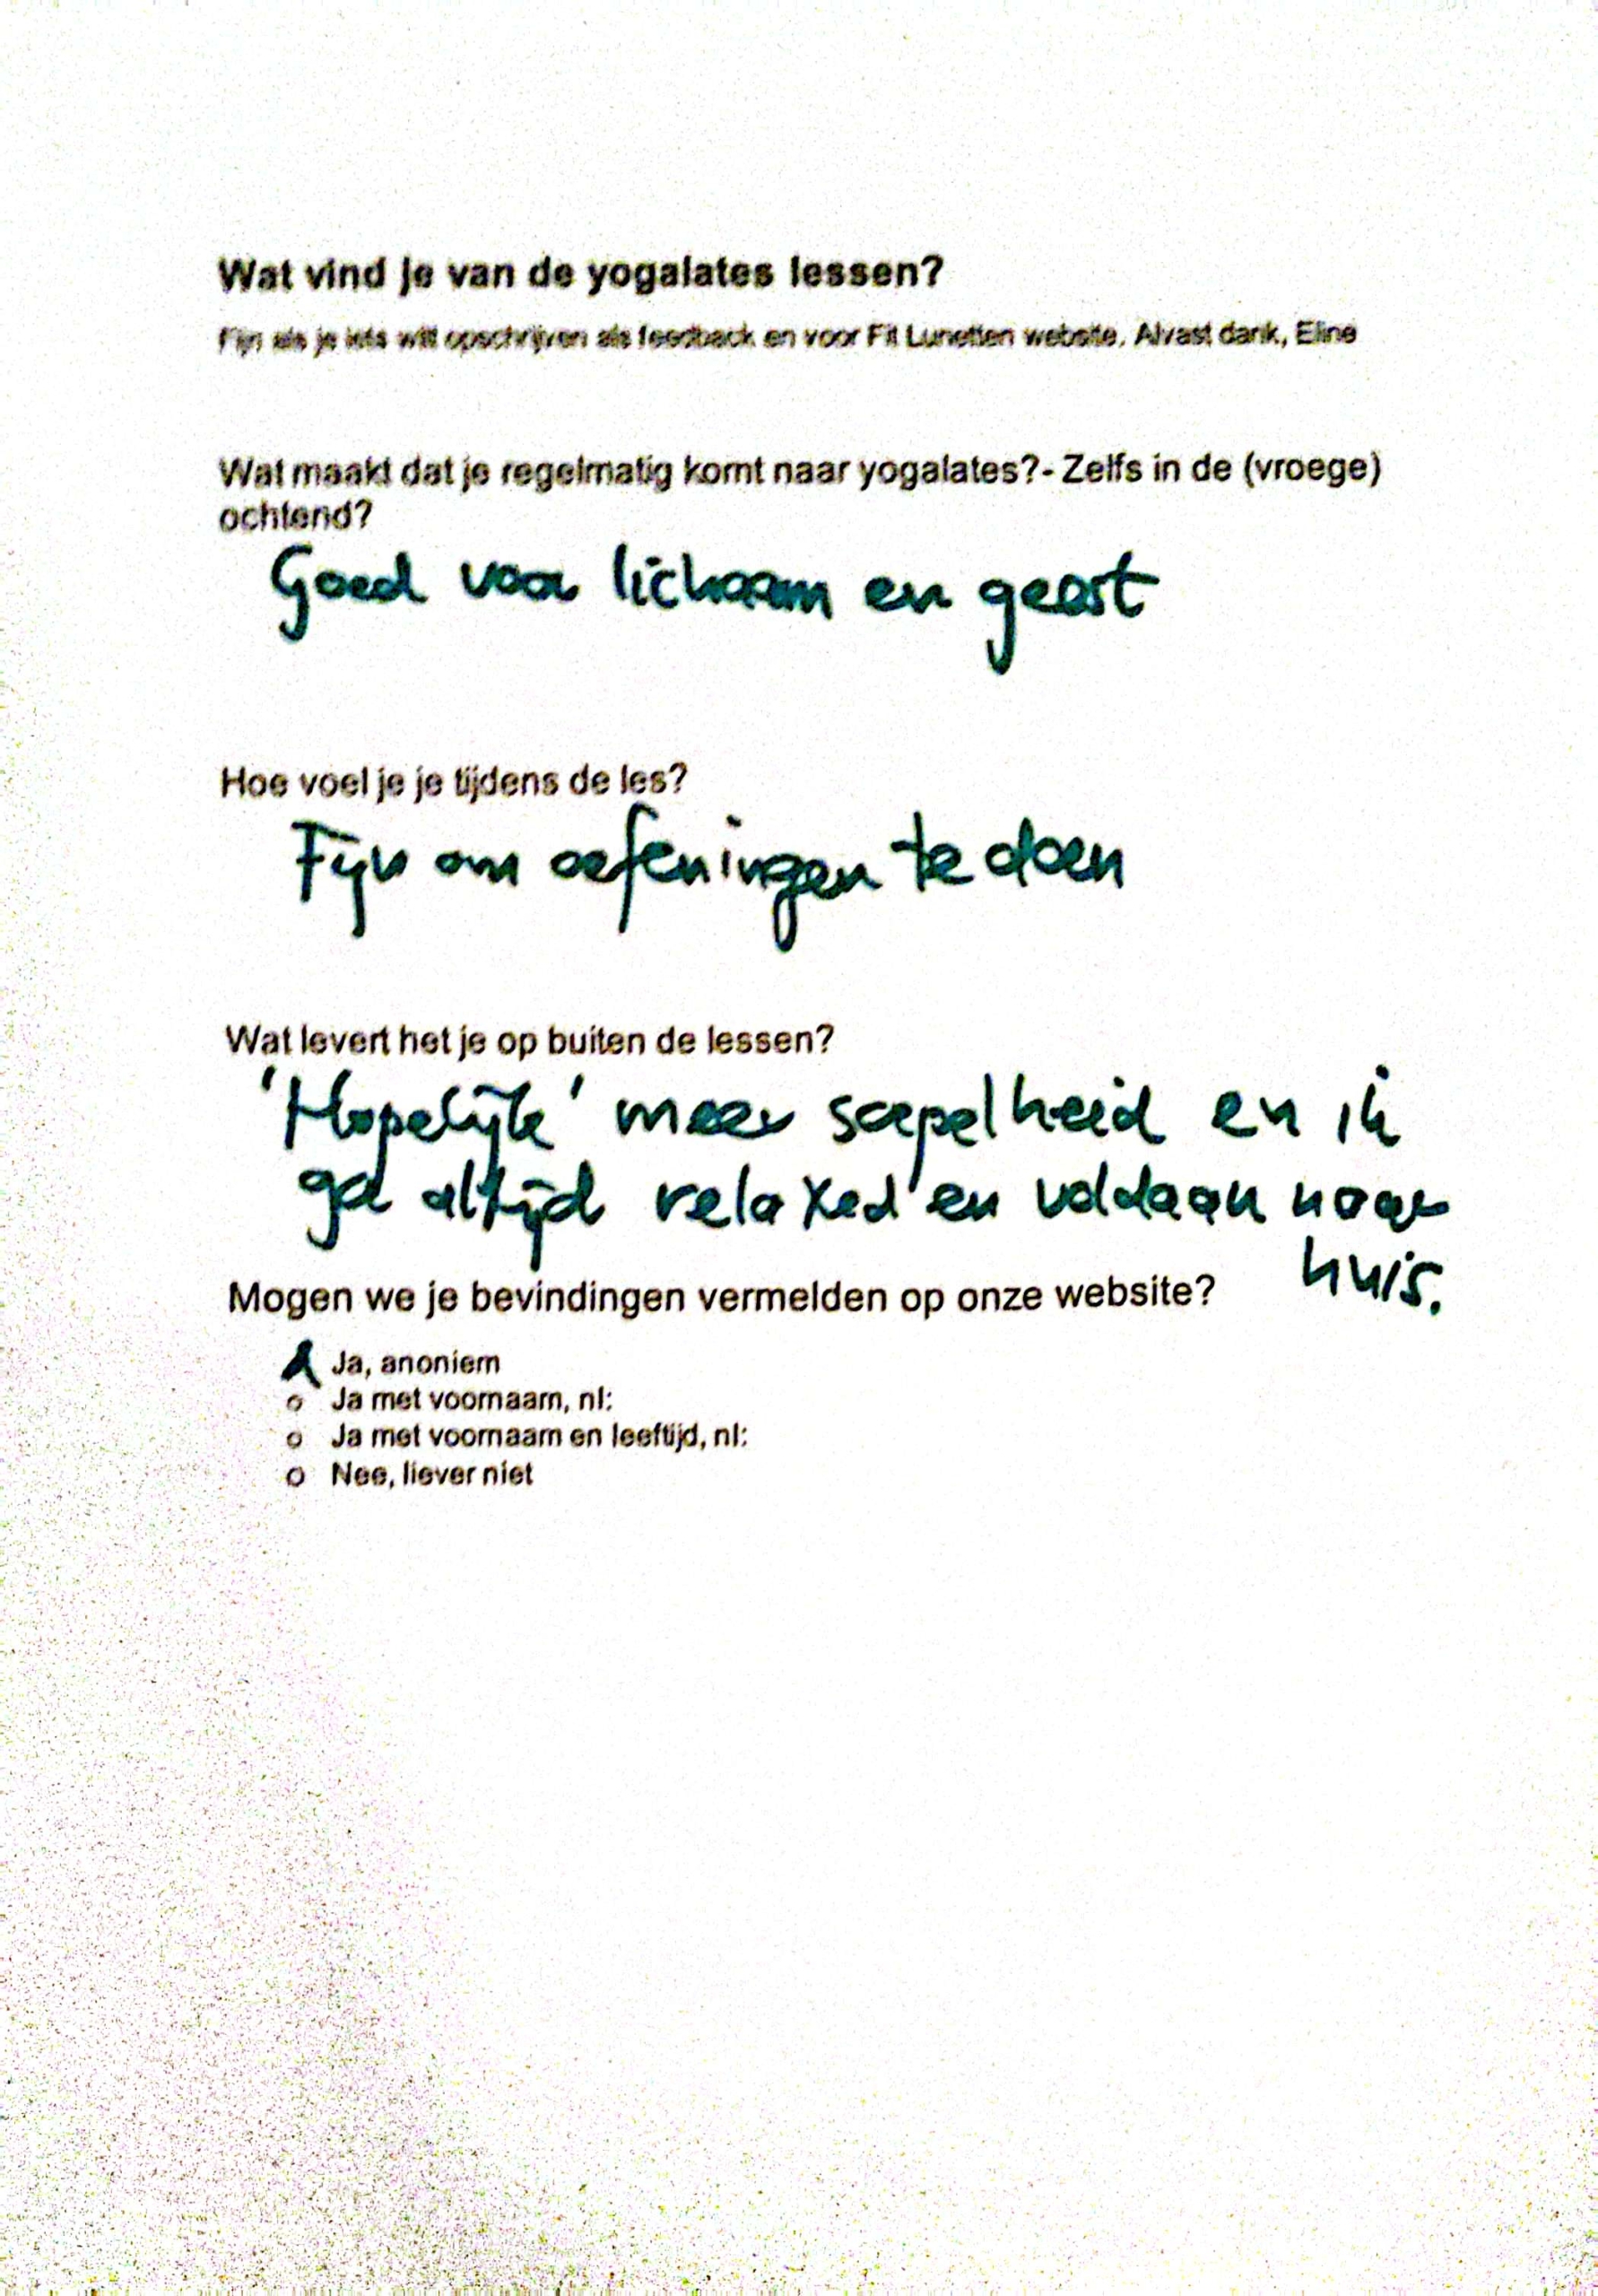 Wat vind je van de yogalates lessen?
Fijn als je iets wilt opschrijven als feedback en voor Fit Lunetten website. Alvast dank, Eline
Wat maakt dat je regelmatig komt naar yogalates?- Zelfs in de (vroege)
ochtend?
Goed voor lichaam en geest
Hoe voel je je tijdens de les?
Fijn om oefeningen te doen
Wat levert het je op buiten de lessen?
'Hopelijk' meer soepelheid en ik
ga altijd relaxed en voldaan naar
huis.
Mogen we je bevindingen vermelden op onze website?
Ja, anoniem
o Ja met voornaam, nl:
o Ja met voornaam en leeftijd, nl:
o Nee, liever niet